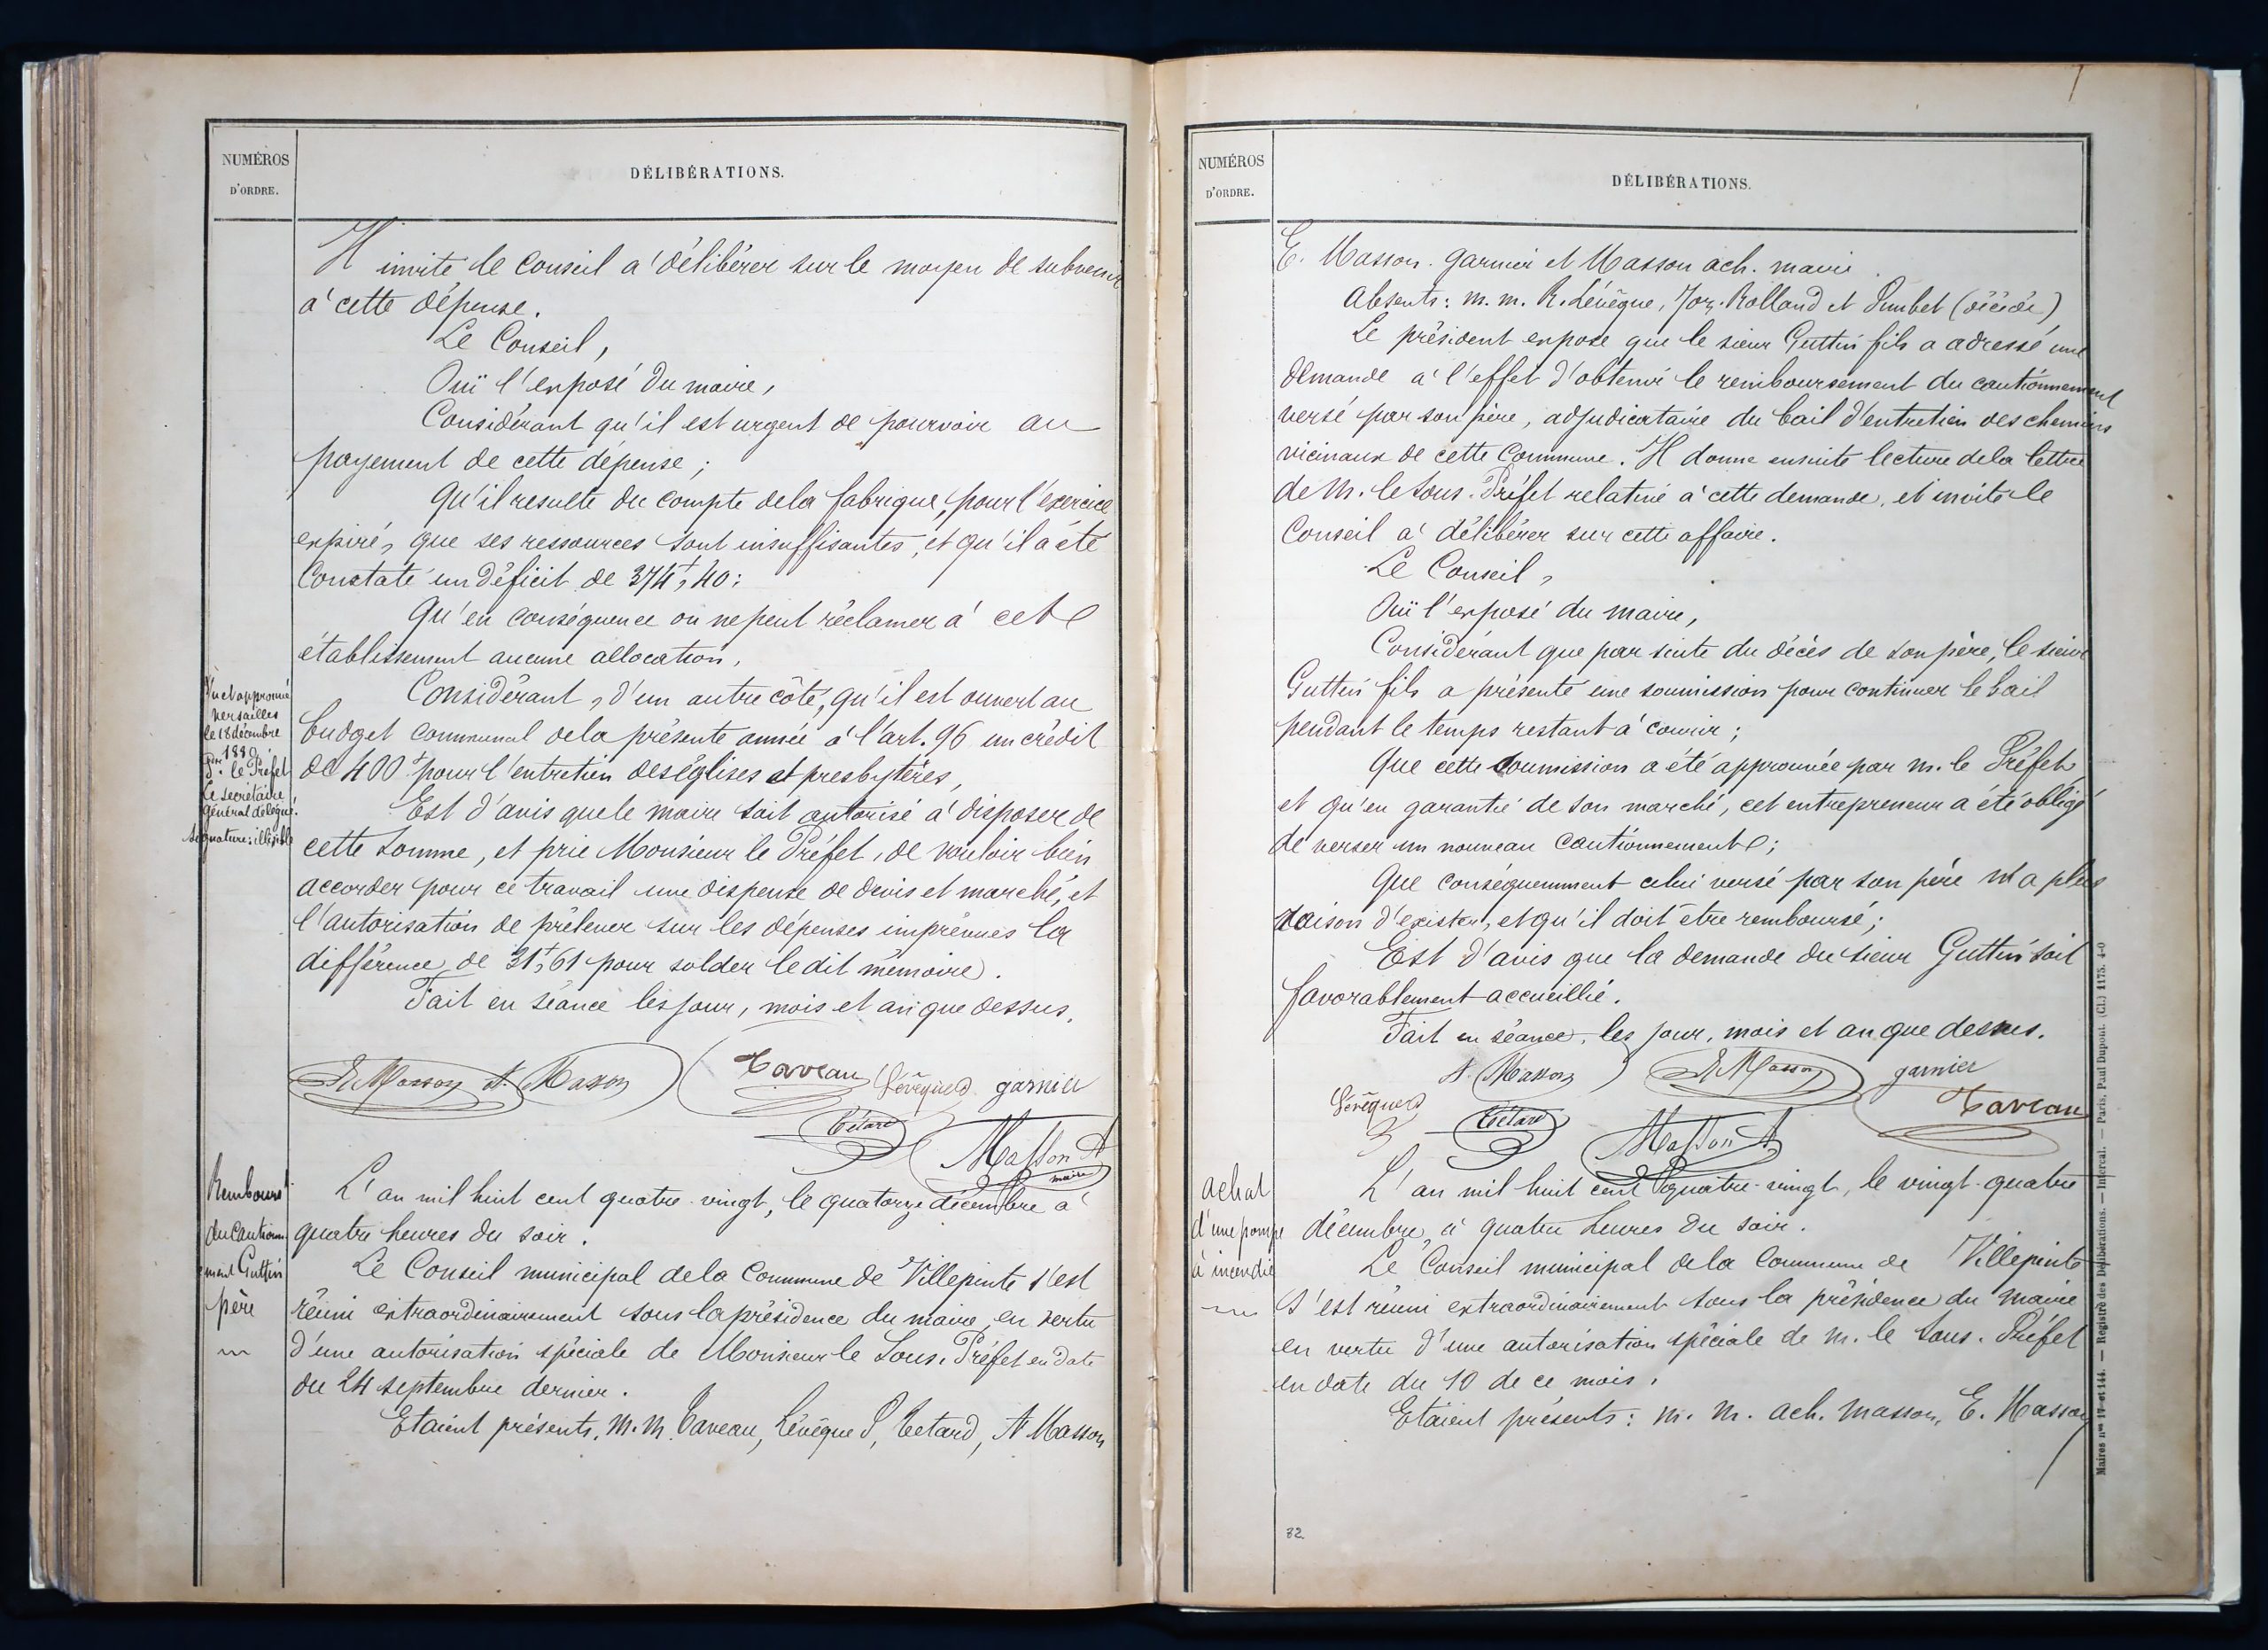 NUMÉROS
D'ORDRE.
DÉLIBÉRATIONS.
Il invite le Conseil a' délibérer sur le moyen de subvenir
a' cette dépense.
Le Conseil,
Ouï l'exposé du maire,
Considérant qu'il est urgent de pourvoir au
payement de cette dépense ;
Qu'il resulte du compte de la fabrique, pour l'exercice
expiré, que ses ressources sont insuffisantes, et qu'il a été
Constaté un déficit de 374f,40 :
Qu'en conséquence on ne peut réclamer a' cet
établissement aucune allocation.
Considérant, d'un autre côté, qu'il est ouvert au
budget communal de la présente année a' l'art. 96 un crédit
de 400f pour l'entretien des églises et presbytères,
Est d'avis que le maire soit autorisé a' disposer de
cette somme, et prie Monsieur le Préfet, de vouloir bien
accorder pour ce travail une dispense de devis et marché, et
l'autorisation de prélever sur les dépenses imprévues la
différence de 31f,61 pour solder le dit mémoire.
Fait en séance les jour, mois et an que dessus.
Vu et approuvé
Versailles
le 18 décembre
1880
Pr. le Préfet
Le secrétaire
général délégué.
Signature : illisible
E. Masson A. Masson Taveau Lévêque garnier
Tétard Masson A
maire
Rembours
du Caution
nement Guttin
père
L'an mil huit cent quatre-vingt, le quatorze décembre a'
quatre heures du soir.
Le Conseil municipal de la Commune de Villepinte s'est
réuni extraordinairement sous la présidence du maire, en vertu
d'une autorisation spéciale de Monsieur le Sous-Préfet en date
du 24 septembre dernier.
Etaient présents, M.M. Taveau, Lévêque P, Tetard, A Masson
NUMÉROS
D'ORDRE.
DÉLIBÉRATIONS.
E. Masson. Garnier et Masson ach. maire.
Absents : m. m. R. Lévêque, Rolland et (décédé)
Le président expose que le sieur Guttin fils a adressé une
demande a' l'effet d'obtenir le remboursement du cautionnement
versé par son père, adjudicataire du bail d'entretien des chemins
vicinaux de cette Commune. Il donne ensuite lecture de la lettre
de M. le Sous-Préfet relative a' cette demande, et invite le
Conseil a' délibérer sur cette affaire.
Le Conseil,
Ouï l'exposé du maire,
Considérant que par suite du décès de son père, le sieur
Guttin fils a présenté une soumission pour continuer le bail
pendant le temps restant a' courir ;
Que cette soumission a été approuvée par m. le Préfet
et qu'en garantie de son marché, cet entrepreneur a été obligé
de verser un nouveau cautionnement ;
Que conséquemment celui versé par son père n'a plus
raison d'exister, et qu'il doit être remboursé ;
Est d'avis que la demande du sieur Guttin soit
favorablement accueillie.
Fait en séance, les jour, mois et an que dessus.
A. Masson E Masson garnier
Lévêque Tétard Masson A Taveau
achat
d'une pompe
à incendie
L'an mil huit cent quatre-vingt, le vingt-quatre
décembre, a' quatre heures du soir.
Le Conseil municipal de la Commune de Villepinte
s'est réuni extraordinairement sous la présidence du Maire
en vertu d'une autorisation spéciale de m. le Sous-Préfet
en date du 10 de ce mois.
Etaient présents : m. m. ach. masson, E. Masson
32
Maires nos 17 et 144. — Registre des Délibérations. — Intercal. — Paris. Paul Dupont. (Cl.) 1175. 4-0